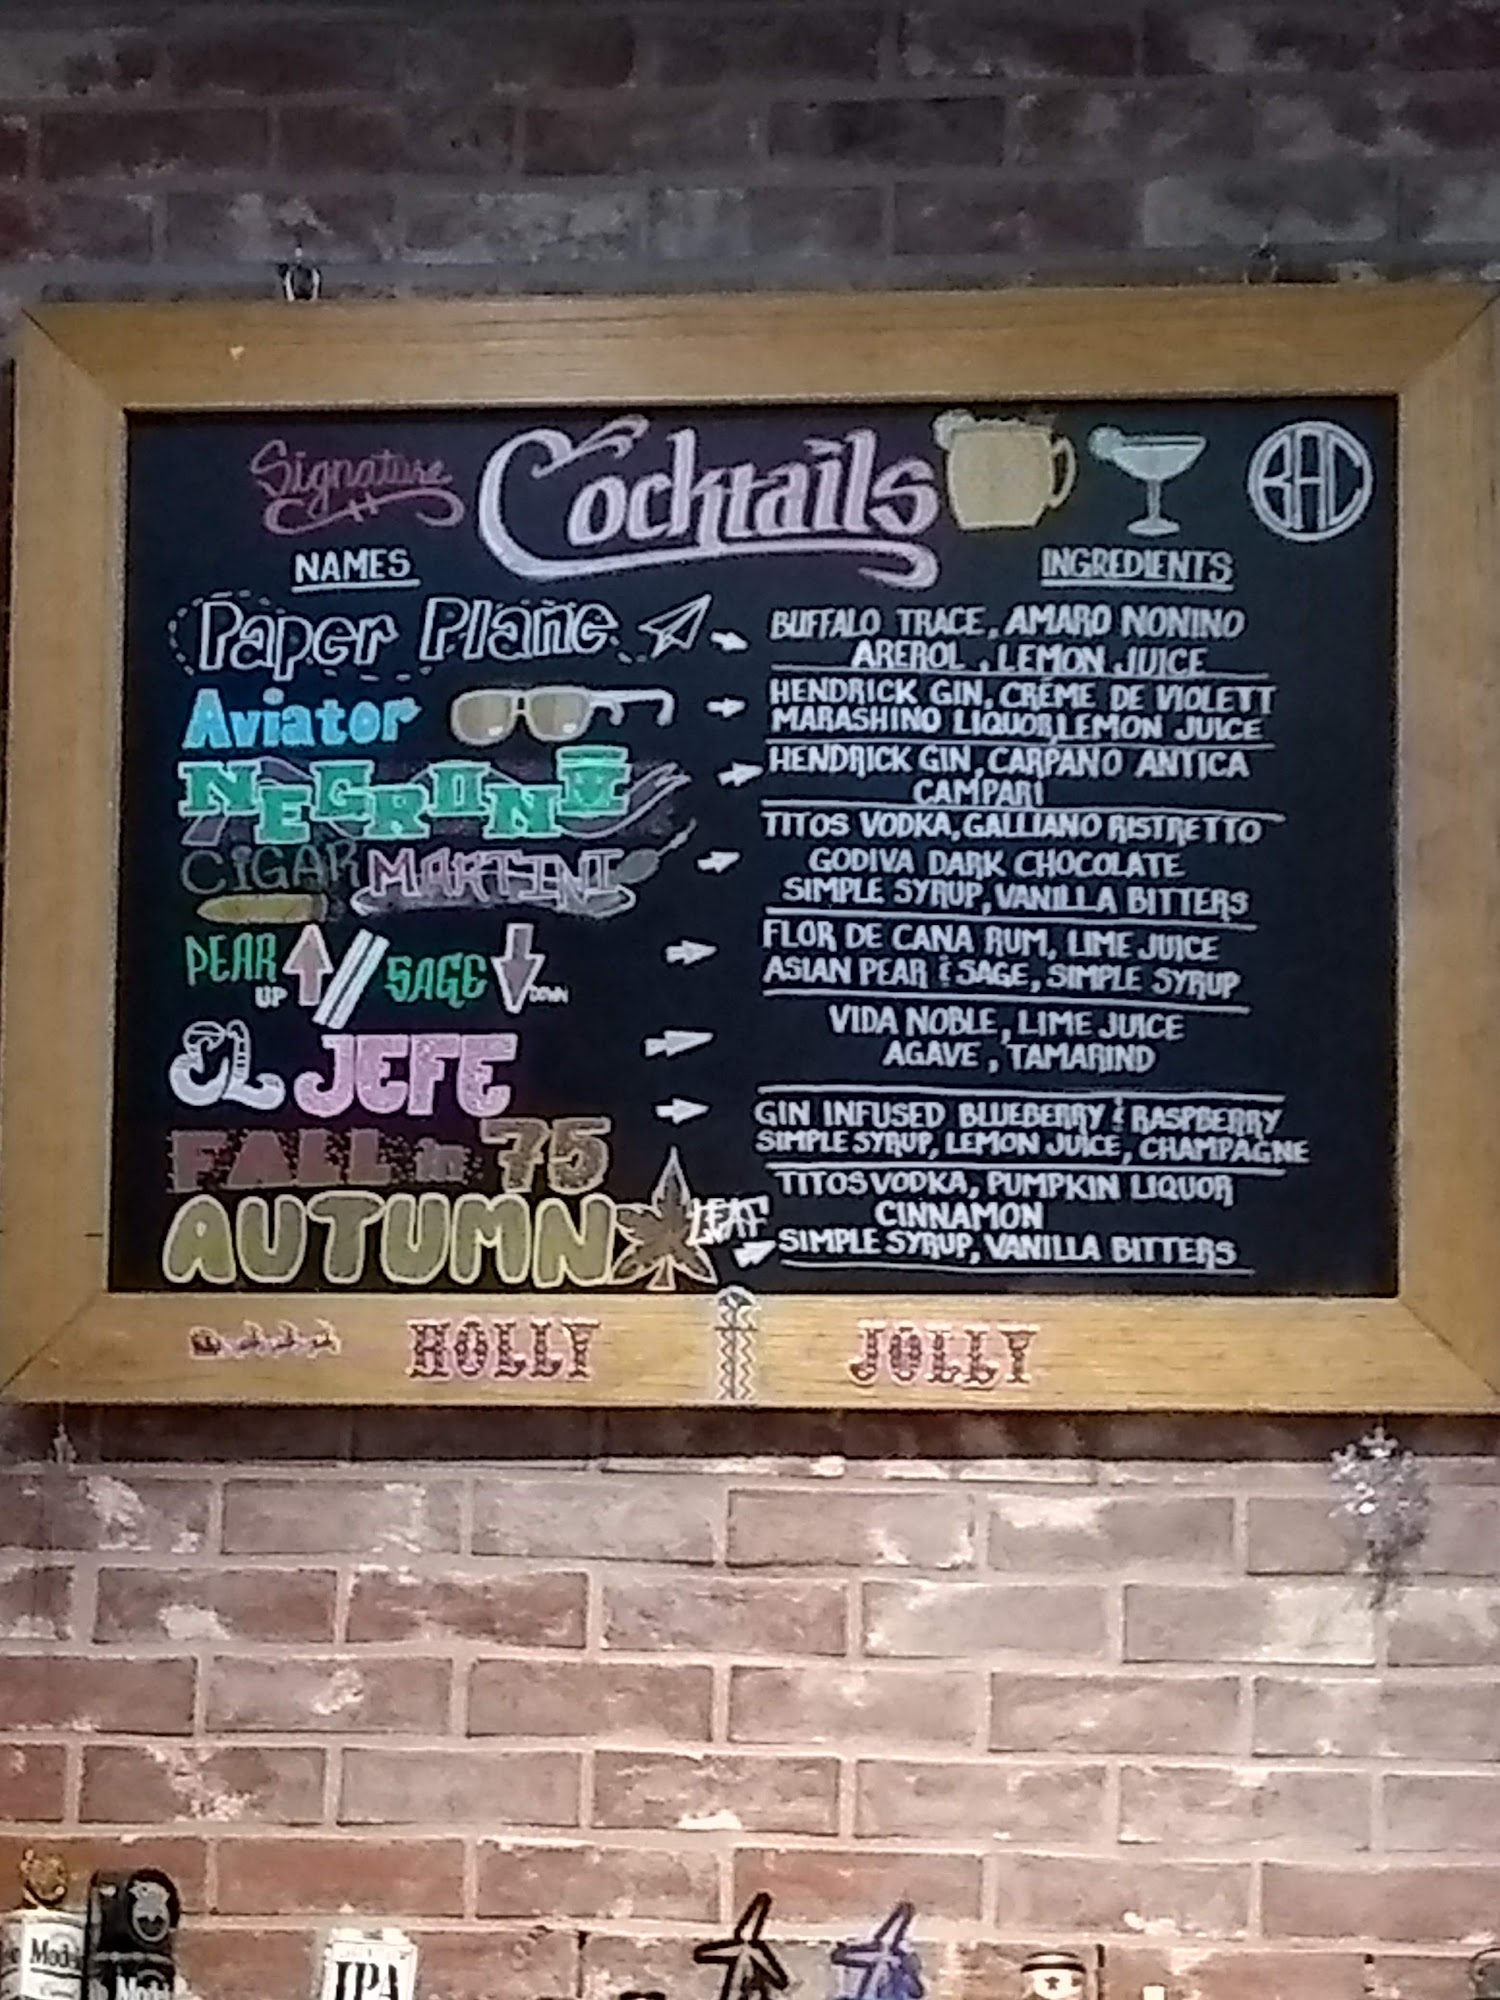 Signature Cocktails BAC
NAMES
INGREDIENTS
Paper Plane
BUFFALO TRACE, AMARO NONINO
AREROL, LEMON JUICE
Aviator
HENDRICK GIN, CRÉME DE VIOLETT
MARASHINO LIQUOR, LEMON JUICE
NEGRONI
HENDRICK GIN, CARPANO ANTICA
CAMPARI
CIGAR MARTINI
TITOS VODKA, GALLIANO RISTRETTO
GODIVA DARK CHOCOLATE
SIMPLE SYRUP, VANILLA BITTERS
PEAR UP // SAGE DOWN
FLOR DE CANA RUM, LIME JUICE
ASIAN PEAR & SAGE, SIMPLE SYRUP
EL JEFE
VIDA NOBLE, LIME JUICE
AGAVE, TAMARIND
FALL in 75
GIN INFUSED BLUEBERRY & RASPBERRY
SIMPLE SYRUP, LEMON JUICE, CHAMPAGNE
AUTUMN LEAF
TITOS VODKA, PUMPKIN LIQUOR
CINNAMON
SIMPLE SYRUP, VANILLA BITTERS
HOLLY JOLLY
IPA